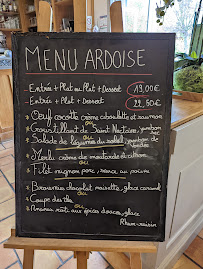 MENU ARDOISE
Entrée + Plat ou Plat + Dessert 19,00€
Entrée + Plat + Dessert 22,50€
* Oeuf cocotte crème ciboulette et saumon
ou
* Croustillant de Saint Nectaire, jambon
* Salade de légumes du soleil, jambon de
ou
* Merlu crème de moutarde
ou
* Filet mignon porc, sauce au poivre
* Brownies chocolat noisette, glace caramel
ou
* Coupe des îles
ou
* Ananas rôti aux épices douces, glace
Rhum-raisin